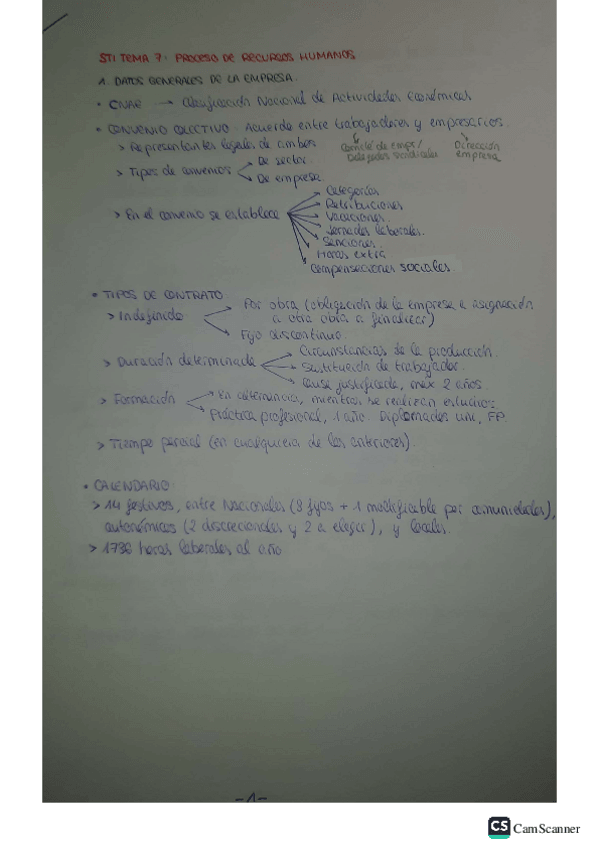 STI TEMA 7: PROCESO DE RECURSOS HUMANOS
1. DATOS GENERALES DE LA EMPRESA.
• CNAE → Clasificación Nacional de Actividades Económicas
• CONVENIO COLECTIVO: Acuerdo entre trabajadores y empresarios.
> Representantes legales de ambos
Comité de emps/
Delegados sindicales
Dirección
empresa
> Tipos de convenios
De sector.
De empresa.
> En el convenio se establece
Categorías
Retribuciones
Vacaciones.
Jornadas laborales.
Sanciones.
Horas extra
Compensaciones sociales
• TIPOS DE CONTRATO
> Indefinido
Por obra (obligación de la empresa a asignación
a otra obra a finalizar)
Fijo discontinuo.
> Duración determinada
Circunstancias de la producción.
Sustitución de trabajador.
Causa justificada, max 2 años
> Formación
En alternancia, mientras se realizan estudios.
Práctica profesional, 1 año. Diplomados uni, FP.
> Tiempo parcial (en cualquiera de los anteriores)
• CALENDARIO
> 14 festivos, entre Nacionales (8 fijos + 1 modificable por comunidades),
autonómicos (2 discrecionales y 2 a elegir), y locales.
> 1736 horas laborales al año
-1-
CS CamScanner